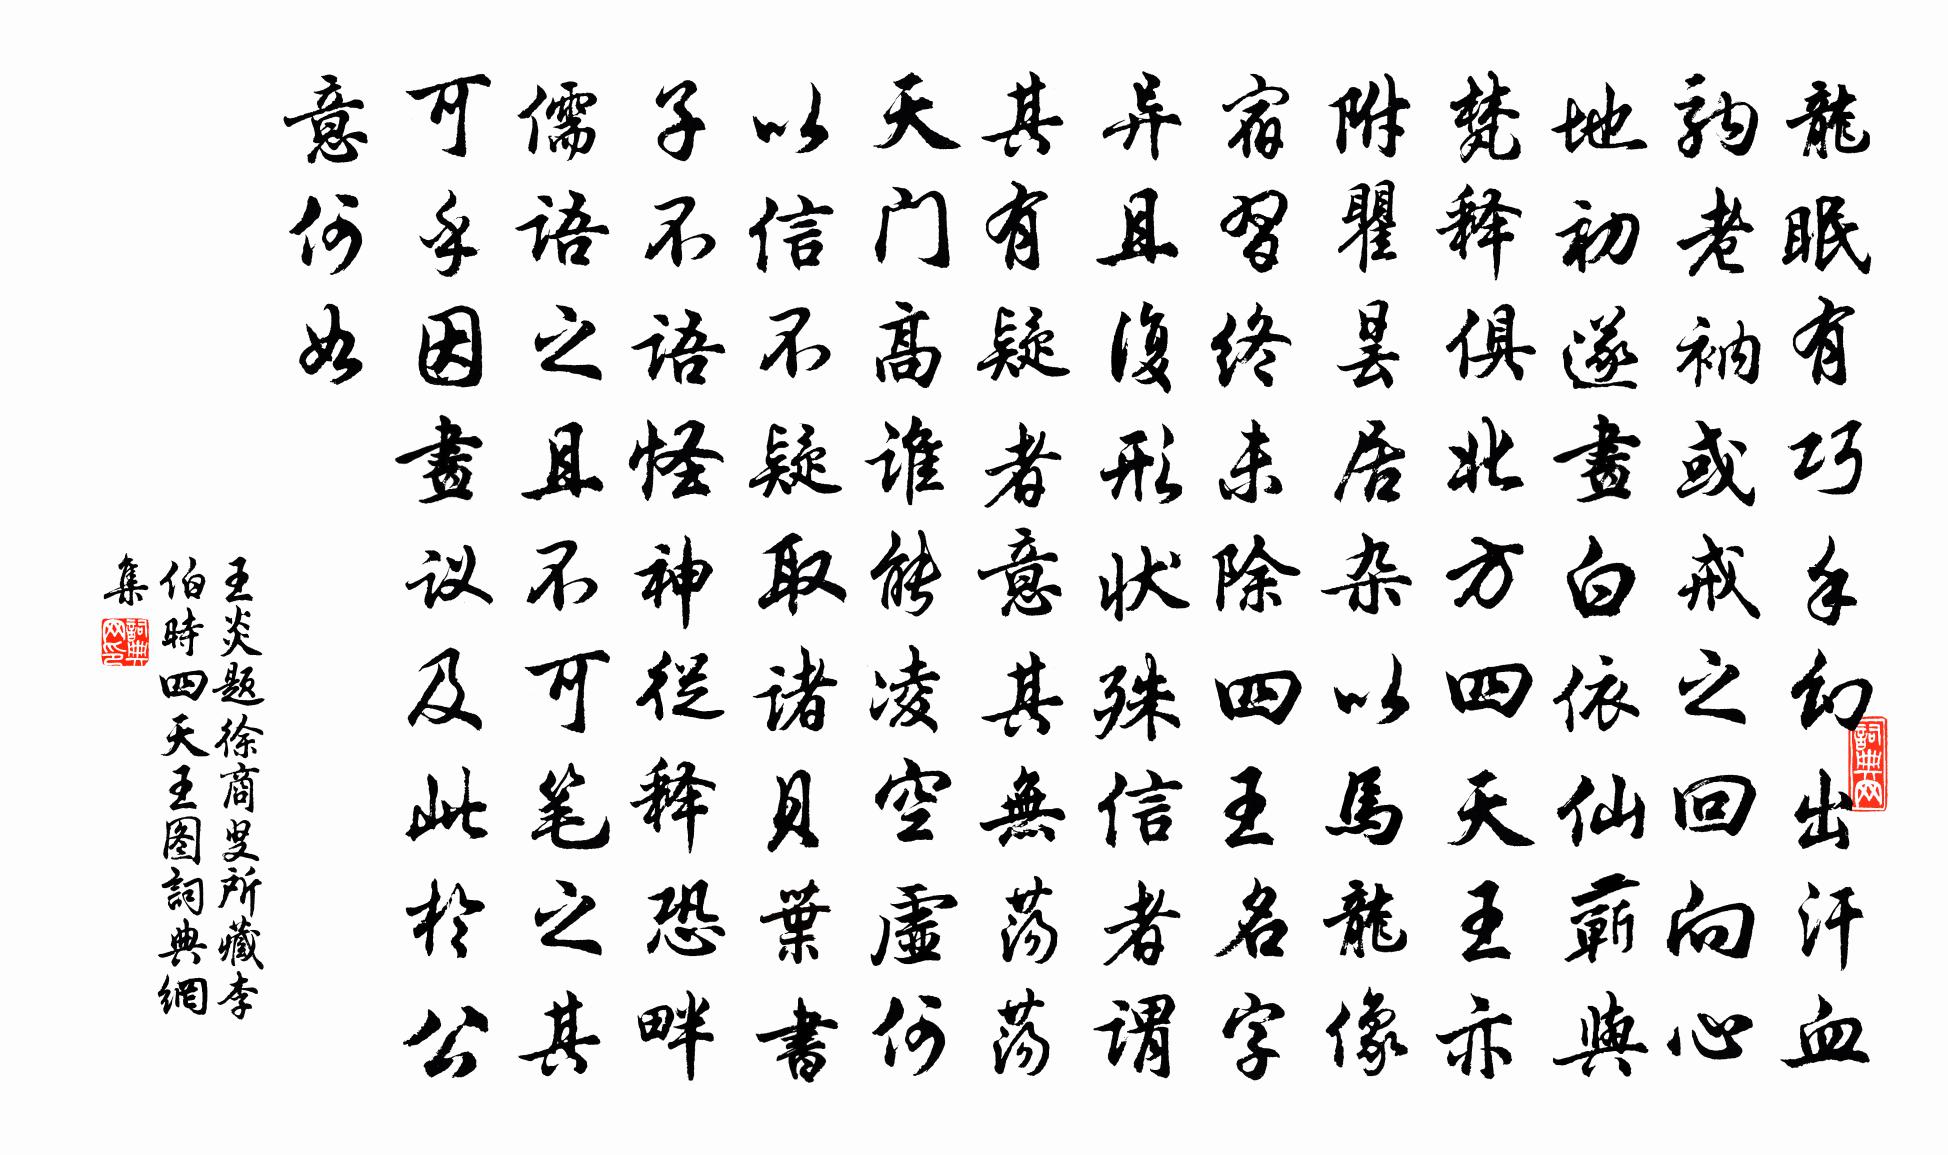 龍眠有巧手幻出汗血
駒老衲或戒之回向心
地初遂畫白依仙蘄與
梵释俱北方四天王亦
附瞿昙居杂以馬龍像
宿習终未除四王名字
异且復形状殊信者謂
其有疑者意其無荡荡
天门高谁能凌空虚何
以信不疑取诸貝葉書
子不语怪神從释恐畔
儒语之且不可笔之其
可乎因畫议及此於公
意何如
王炎题徐商叟所藏李
伯時四天王图詞典網
集
詞典网
詞典网印